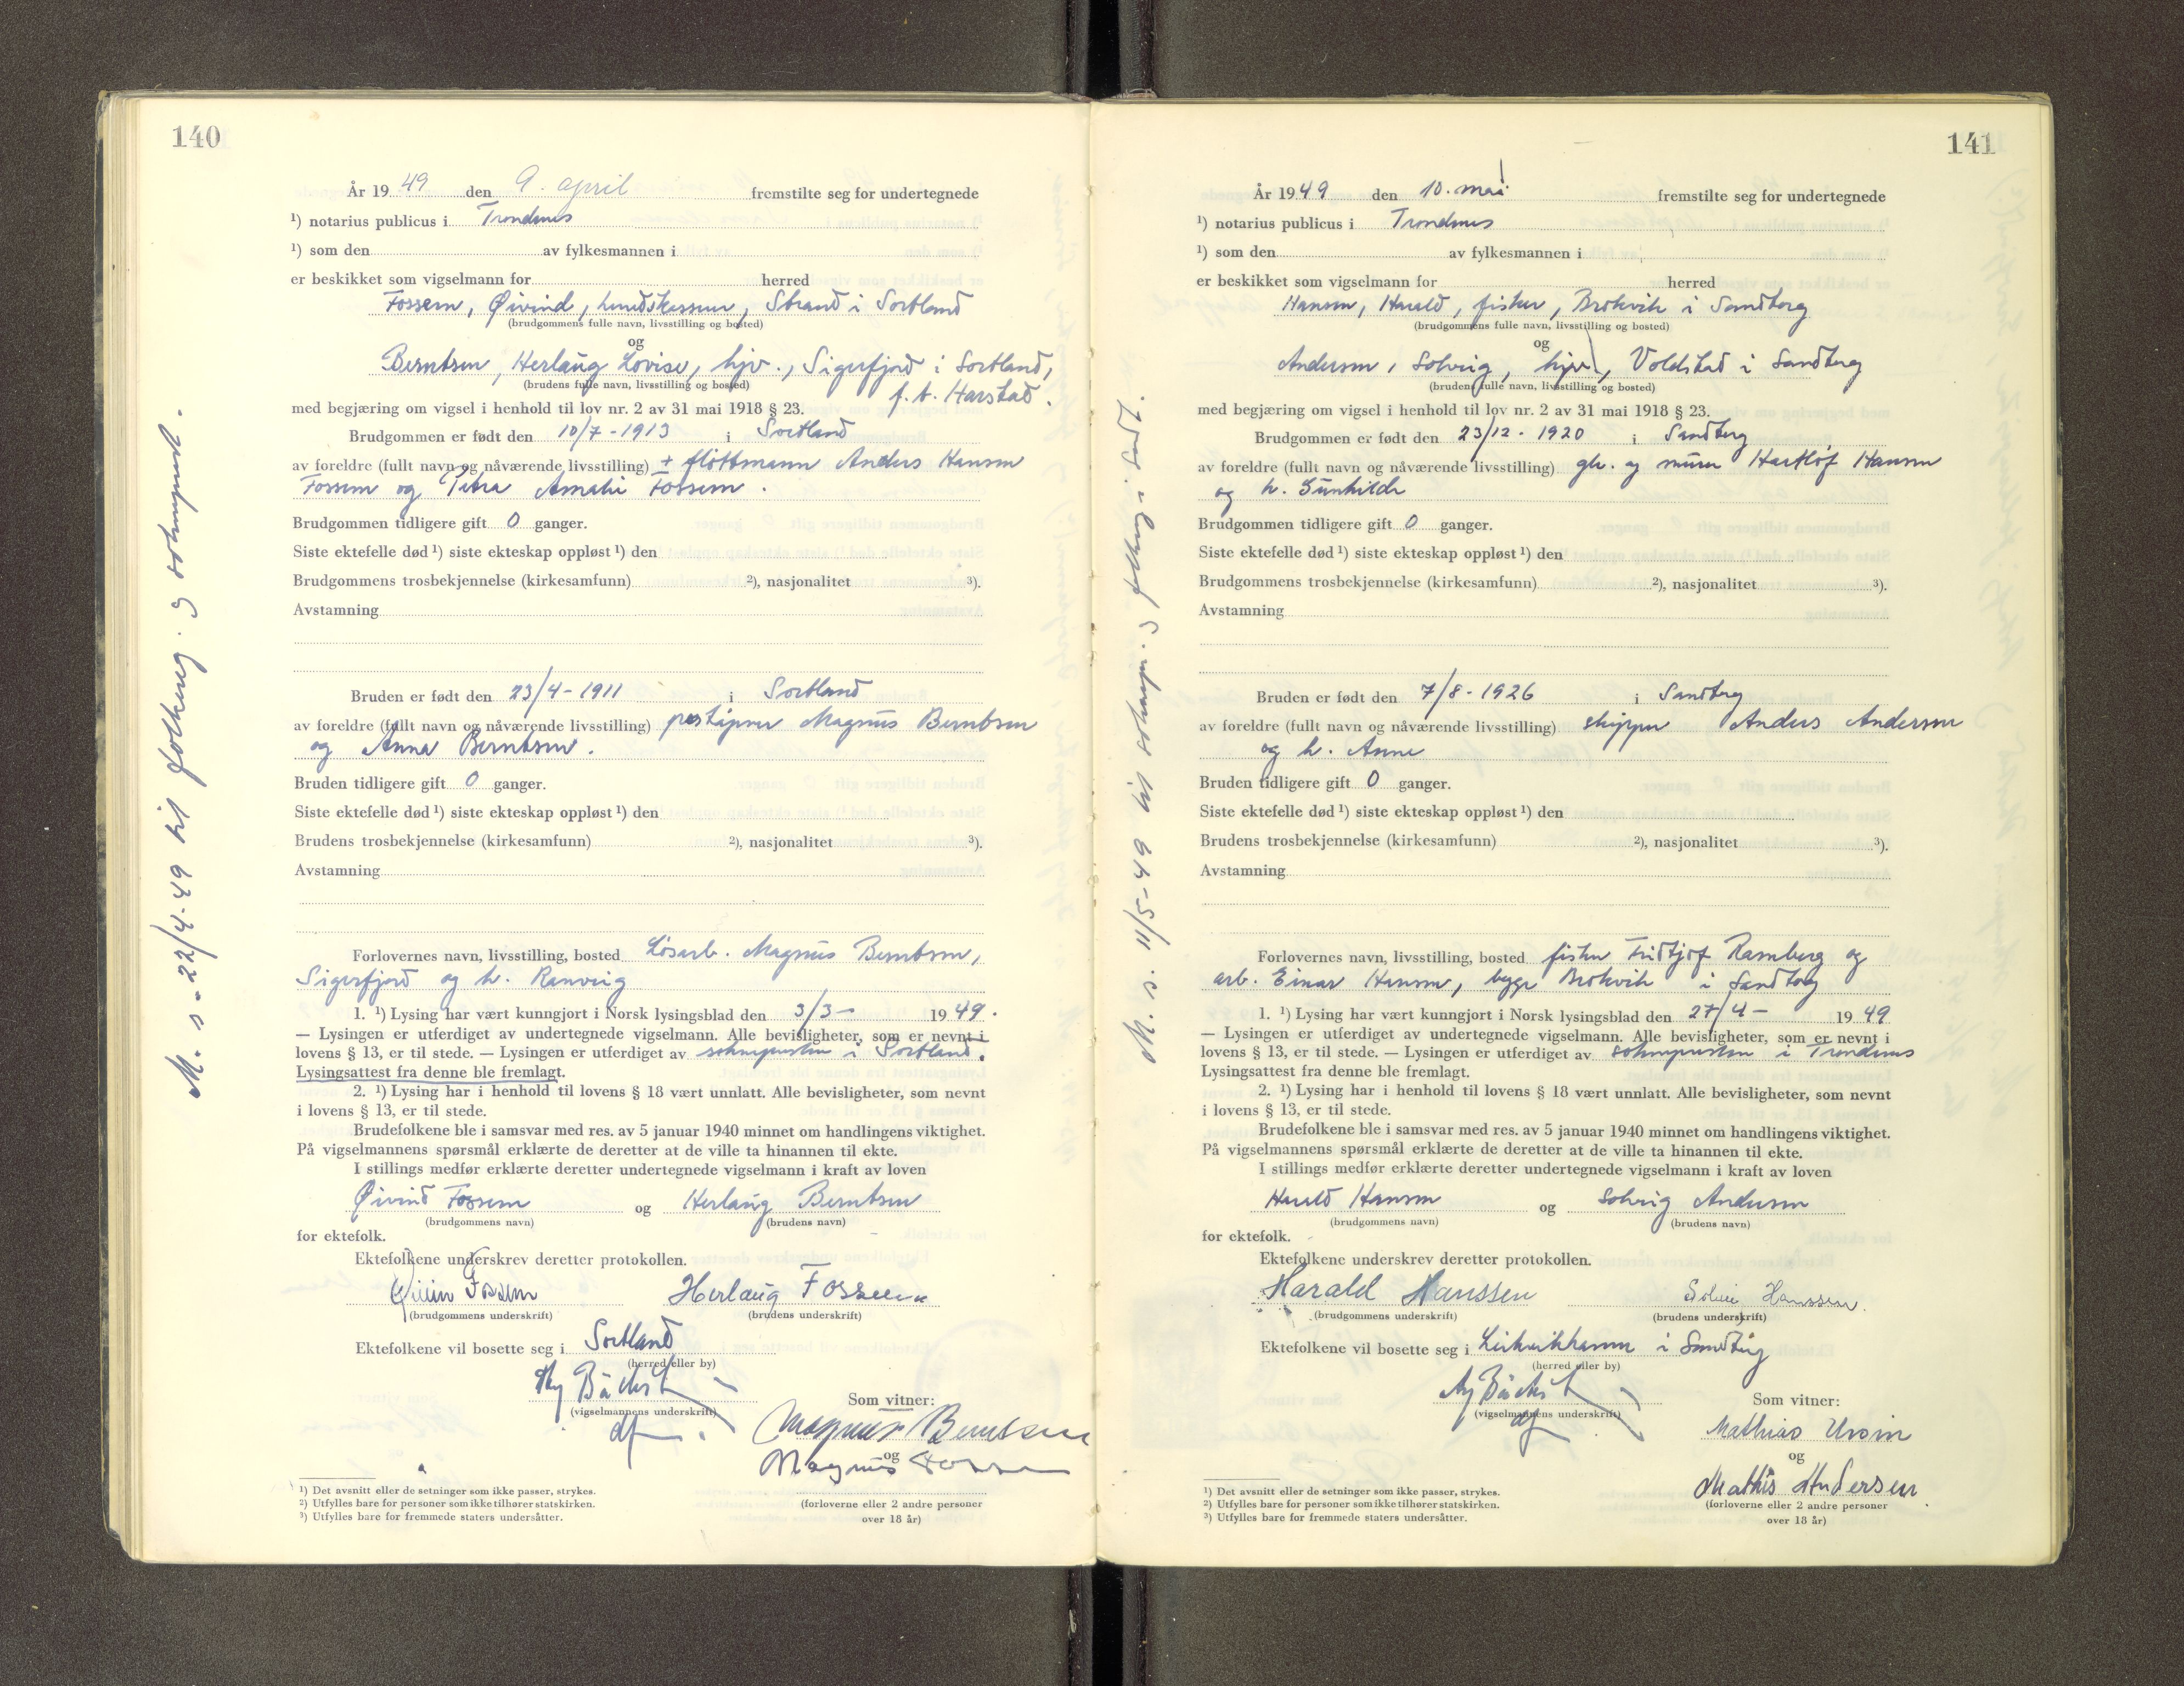 140
År 19 49 den 9. april fremstilte seg for undertegnede
¹) notarius publicus i Trondenes
¹) som den av fylkesmannen i
er beskikket som vigselmann for herred
Fossem, Øivind, Strand i Sortland
(brudgommens fulle navn, livsstilling og bosted)
og
Berntsen, Herlaug Lovise, hjv., Sigerfjord i Sortland,
(brudens fulle navn, livsstilling og bosted)
f. t. Harstad.
med begjæring om vigsel i henhold til lov nr. 2 av 31 mai 1918 § 23.
Brudgommen er født den 10/7 - 1913 i Sortland
av foreldre (fullt navn og nåværende livsstilling) + fløttmann Anders Hansen
Fossem og Petra Amalie Fossem.
Brudgommen tidligere gift 0 ganger.
Siste ektefelle død ¹) siste ekteskap oppløst ¹) den
Brudgommens trosbekjennelse (kirkesamfunn) ²), nasjonalitet ³).
Avstamning
Bruden er født den 23/4 - 1911 i Sortland
av foreldre (fullt navn og nåværende livsstilling) Magnus Berntsen
og Anna Berntsen.
Bruden tidligere gift 0 ganger.
Siste ektefelle død ¹) siste ekteskap oppløst ¹) den
Brudens trosbekjennelse (kirkesamfunn) ²), nasjonalitet ³).
Avstamning
Forlovernes navn, livsstilling, bosted Løsarb. Magnus Berntsen,
Sigerfjord og h. Ranveig
1. ¹) Lysing har vært kunngjort i Norsk lysingsblad den 3/3 - 19 49.
— Lysingen er utferdiget av undertegnede vigselmann. Alle bevisligheter, som er nevnt i
lovens § 13, er til stede. — Lysingen er utferdiget av soknepresten i Sortland.
Lysingsattest fra denne ble fremlagt.
2. ¹) Lysing har i henhold til lovens § 18 vært unnlatt. Alle bevisligheter, som nevnt
i lovens § 13, er til stede.
Brudefolkene ble i samsvar med res. av 5 januar 1940 minnet om handlingens viktighet.
På vigselmannens spørsmål erklærte de deretter at de ville ta hinannen til ekte.
I stillings medfør erklærte deretter undertegnede vigselmann i kraft av loven
Øivind Fossem og Herlaug Berntsen
(brudgommens navn) (brudens navn)
for ektefolk.
Ektefolkene underskrev deretter protokollen.
Øivin Fossem Herlaug Fossem
(brudgommens underskrift) (brudens underskrift)
Ektefolkene vil bosette seg i Sortland
(herred eller by)
(vigselmannens underskrift)
Som vitner:
Magnus Berntsen
og
Magnus Fossem
(forloverne eller 2 andre personer
over 18 år)
¹) Det avsnitt eller de setninger som ikke passer, strykes.
²) Utfylles bare for personer som ikke tilhører statskirken.
³) Utfylles bare for fremmede staters undersåtter.
M. s. 22/4-49 til folkereg. og sokneprest.
141
År 19 49 den 10. mai fremstilte seg for undertegnede
¹) notarius publicus i Trondenes
¹) som den av fylkesmannen i
er beskikket som vigselmann for herred
Hansen, Harald, fisker, Brokvik i Sandtorg
(brudgommens fulle navn, livsstilling og bosted)
og
Andersen, Solveig, hjv., Voldstad i Sandtorg
(brudens fulle navn, livsstilling og bosted)
med begjæring om vigsel i henhold til lov nr. 2 av 31 mai 1918 § 23.
Brudgommen er født den 23/12 - 1920 i Sandtorg
av foreldre (fullt navn og nåværende livsstilling) gbr. og murer Hartløf Hansen
og h. Gunhilde
Brudgommen tidligere gift 0 ganger.
Siste ektefelle død ¹) siste ekteskap oppløst ¹) den
Brudgommens trosbekjennelse (kirkesamfunn) ²), nasjonalitet ³).
Avstamning
Bruden er født den 7/8 - 1926 i Sandtorg
av foreldre (fullt navn og nåværende livsstilling) skipper Anders Andersen
og h. Anne
Bruden tidligere gift 0 ganger.
Siste ektefelle død ¹) siste ekteskap oppløst ¹) den
Brudens trosbekjennelse (kirkesamfunn) ²), nasjonalitet ³).
Avstamning
Forlovernes navn, livsstilling, bosted fisker Fridtjof Ramberg og
arb. Einar Hansen, begge Brokvik i Sandtorg
1. ¹) Lysing har vært kunngjort i Norsk lysingsblad den 27/4 - 19 49
— Lysingen er utferdiget av undertegnede vigselmann. Alle bevisligheter, som er nevnt i
lovens § 13, er til stede. — Lysingen er utferdiget av soknepresten i Trondenes
Lysingsattest fra denne ble fremlagt.
2. ¹) Lysing har i henhold til lovens § 18 vært unnlatt. Alle bevisligheter, som nevnt
i lovens § 13, er til stede.
Brudefolkene ble i samsvar med res. av 5 januar 1940 minnet om handlingens viktighet.
På vigselmannens spørsmål erklærte de deretter at de ville ta hinannen til ekte.
I stillings medfør erklærte deretter undertegnede vigselmann i kraft av loven
Harald Hansen og Solveig Andersen
(brudgommens navn) (brudens navn)
for ektefolk.
Ektefolkene underskrev deretter protokollen.
Harald Hanssen Hanssen.
(brudgommens underskrift) (brudens underskrift)
Ektefolkene vil bosette seg i i Sandtorg
(herred eller by)
(vigselmannens underskrift)
Som vitner:
Mathias Ursin
og
Mathis Andersen
(forloverne eller 2 andre personer
over 18 år)
¹) Det avsnitt eller de setninger som ikke passer, strykes.
²) Utfylles bare for personer som ikke tilhører statskirken.
³) Utfylles bare for fremmede staters undersåtter.
M. s. 11/5-49 til soknepr. og folkereg. i Sandt.